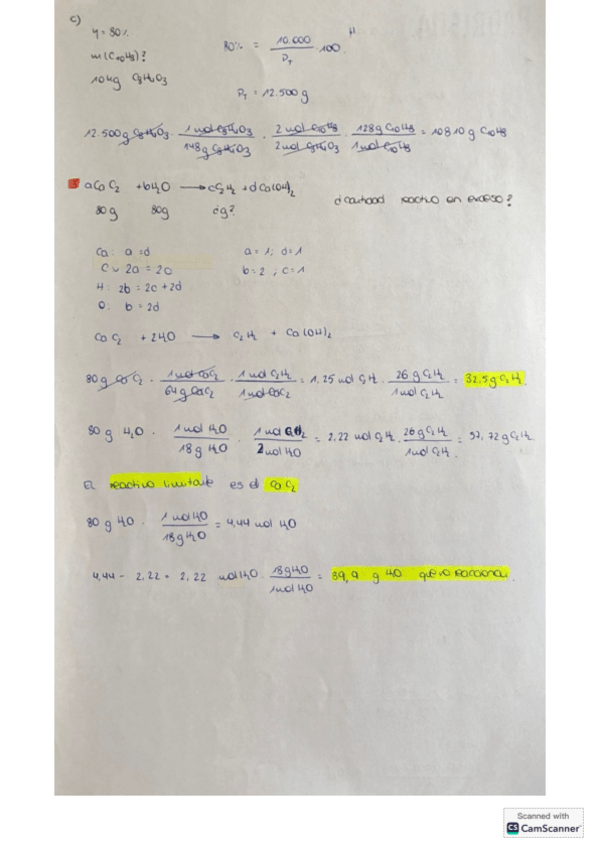 c)
η = 80%
m (C10H8)?
10 kg C8H4O3
80% = 10.000 / PT · 100
PT = 12.500 g
12.500 g C8H4O3 · 1 mol C8H4O3 / 148 g C8H4O3 · 2 mol C10H8 / 2 mol C8H4O3 · 128 g C10H8 / 1 mol C10H8 = 10810 g C10H8
a CaC2 + b H2O → c C2H2 + d Ca(OH)2
80 g 80g ¿g?
¿cantidad reactivo en exceso?
Ca: a = d
C: 2a = 2c
H: 2b = 2c + 2d
O: b = 2d
a = 1; d = 1
b = 2; c = 1
CaC2 + 2H2O → C2H2 + Ca(OH)2
80 g CaC2 · 1 mol CaC2 / 64 g CaC2 · 1 mol C2H2 / 1 mol CaC2 = 1,25 mol C2H2 · 26 g C2H2 / 1 mol C2H2 = 32,5 g C2H2
80 g H2O · 1 mol H2O / 18 g H2O · 1 mol C2H2 / 2 mol H2O = 2,22 mol C2H2 · 26 g C2H2 / 1 mol C2H2 = 57,72 g C2H2
El reactivo limitante es el CaC2
80 g H2O · 1 mol H2O / 18 g H2O = 4,44 mol H2O
4,44 - 2,22 = 2,22 mol H2O · 18 g H2O / 1 mol H2O = 39,9 g H2O que no reaccionan.
Scanned with
CS CamScanner